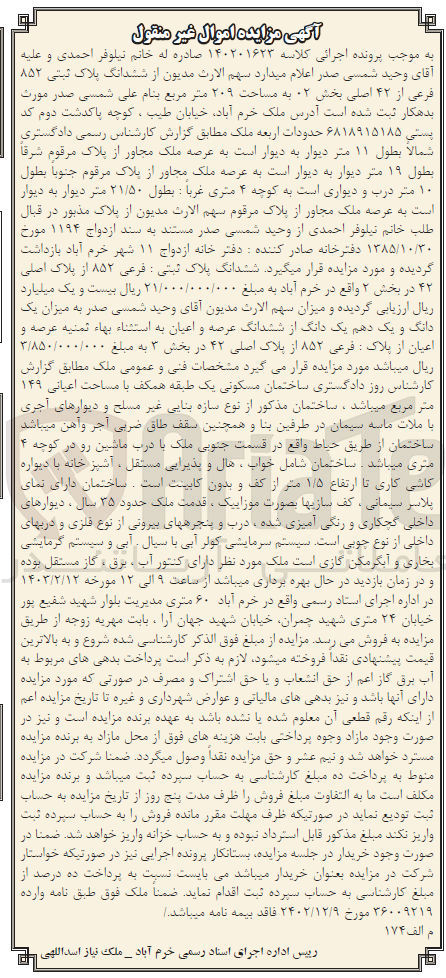 آگهی مزایده اموال غیر منقول
به موجب پرونده اجرائی کلاسه ۱۴۰۲۰۱۶۲۳ صادره له خانم نیلوفر احمدی و علیه
آقای وحید شمسی صدر اعلام میدارد سهم الارث مدیون از ششدانگ پلاک ثبتی ۸۵۲
فرعی از ۴۲ اصلی بخش ۰۲ به مساحت ۲۰۹ متر مربع بنام علی شمسی صدر مورث
بدهکار ثبت شده است آدرس ملک خرم آباد، خیابان طیب ، کوچه پاکدشت دوم کد
پستی ۶۸۱۸۹۱۵۱۸۵ حدودات اربعه ملک مطابق گزارش کارشناس رسمی دادگستری
شمالاً بطول ۱۱ متر دیوار به دیوار است به عرصه ملک مجاور از پلاک مرقوم شرقاً
بطول ۱۹ متر دیوار به دیوار است به عرصه ملک مجاور از پلاک مرقوم جنوباً بطول
۱۰ متر درب و دیواری است به کوچه ۴ متری غرباً : بطول ۲۱/۵۰ متر دیوار به دیوار
است به عرصه ملک مجاور از پلاک مرقوم سهم الارث مدیون از پلاک مذبور در قبال
طلب خانم نیلوفر احمدی از وحید شمسی صدر مستند به سند ازدواج ۱۱۹۴ مورخ
۱۳۸۵/۱۰/۳۰ دفترخانه صادر کننده : دفتر خانه ازدواج ۱۱ شهر خرم آباد بازداشت
گردیده و مورد مزایده قرار میگیرد. ششدانگ پلاک ثبتی : فرعی ۸۵۲ از پلاک اصلی
۴۲ در بخش ۲ واقع در خرم آباد به مبلغ ۲۱/۰۰۰/۰۰۰/۰۰۰ ریال بیست و یک میلیارد
ریال ارزیابی گردیده و میزان سهم الارث مدیون آقای وحید شمسی صدر به میزان یک
دانگ و یک دهم یک دانگ از ششدانگ عرصه و اعیان به استثناء بهاء ثمنیه عرصه و
اعیان از پلاک : فرعی ۸۵۲ از پلاک اصلی ۴۲ در بخش ۳ به مبلغ ۳/۸۵۰/۰۰۰/۰۰۰
ریال میباشد مورد مزایده قرار می گیرد مشخصات فنی و عمومی ملک مطابق گزارش
کارشناس روز دادگستری ساختمان مسکونی یک طبقه همکف با مساحت اعیانی ۱۴۹
متر مربع میباشد ، ساختمان مذکور از نوع سازه بنایی غیر مسلح و دیوارهای آجری
با ملات ماسه سیمان در طرفین بنا و همچنین سقف طاق ضربی آجر وآهن میباشد
ساختمان از طریق حیاط واقع در قسمت جنوبی ملک با درب ماشین رو در کوچه ۴
متری میباشد . ساختمان شامل خواب ، هال و پذیرایی مستقل ، آشپز خانه با دیواره
کاشی کاری تا ارتفاع ۱/۵ متر از کف و بدون کابینت است . ساختمان دارای نمای
پلاسر سیمانی ، کف سازیها بصورت موزاییک ، قدمت ملک حدود ۳۵ سال ، دیوارهای
داخلی گچکاری و رنگی آمیزی شده ، درب و پنجرههای بیرونی از نوع فلزی و دربهای
داخلی از نوع چوبی است. سیستم سرمایشی کولر آبی با سیال . آبی و سیستم گرمایشی
بخاری و آبگرمکن گازی است ملک مورد نظر دارای کنتور آب ، برق ، گاز مستقل بوده
و در زمان بازدید در حال بهره برداری میباشد از ساعت ۹ الی ۱۲ مورخه ۱۴۰۳/۲/۱۲
در اداره اجرای اسناد رسمی واقع در خرم آباد ۶۰ متری مدیریت بلوار شهید شفیع پور
خیابان ۲۴ متری شهید چمران، خیابان شهید جهان آرا ، بابت مهریه زوجه از طریق
مزایده به فروش می رسد. مزایده از مبلغ فوق الذکر کارشناسی شده شروع و به بالاترین
قیمت پیشنهادی نقداً فروخته میشود، لازم به ذکر است پرداخت بدهی های مربوط به
آب برق گاز اعم از حق انشعاب و یا حق اشتراک و مصرف در صورتی که مورد مزایده
دارای آنها باشد و نیز بدهی های مالیاتی و عوارض شهرداری و غیره تا تاریخ مزایده اعم
از اینکه رقم قطعی آن معلوم شده یا نشده باشد به عهده برنده مزایده است و نیز در
صورت وجود مازاد وجوه پرداختی بابت هزینه های فوق از محل مازاد به برنده مزایده
مسترد خواهد شد و نیم عشر و حق مزایده نقداً وصول میگردد. ضمنا شرکت در مزایده
منوط به پرداخت ده مبلغ کارشناسی به حساب سپرده ثبت میباشد و برنده مزایده
مکلف است ما به التفاوت مبلغ فروش را ظرف مدت پنج روز از تاریخ مزایده به حساب
ثبت تودیع نماید در صورتیکه ظرف مهلت مقرر مانده فروش را به حساب سپرده ثبت
واریز نکند مبلغ مذکور قابل استرداد نبوده و به حساب خزانه واریز خواهد شد. ضمنا در
صورت وجود خریدار در جلسه مزایده، بستانکار پرونده اجرایی نیز در صورتیکه خواستار
شرکت در مزایده بعنوان خریدار میباشد می بایست نسبت به پرداخت ده درصد از
مبلغ کارشناسی به حساب سپرده ثبت اقدام نماید. ضمناً ملک فوق طبق نامه وارده
۳۶۰۰۹۲۱۹ مورخ ۲۴۰۲/۱۲/۹ فاقد بیمه نامه میباشد./
م الف۱۷۴
رییس اداره اجرای اسناد رسمی خرم آباد _ ملک نیاز اسداللهی